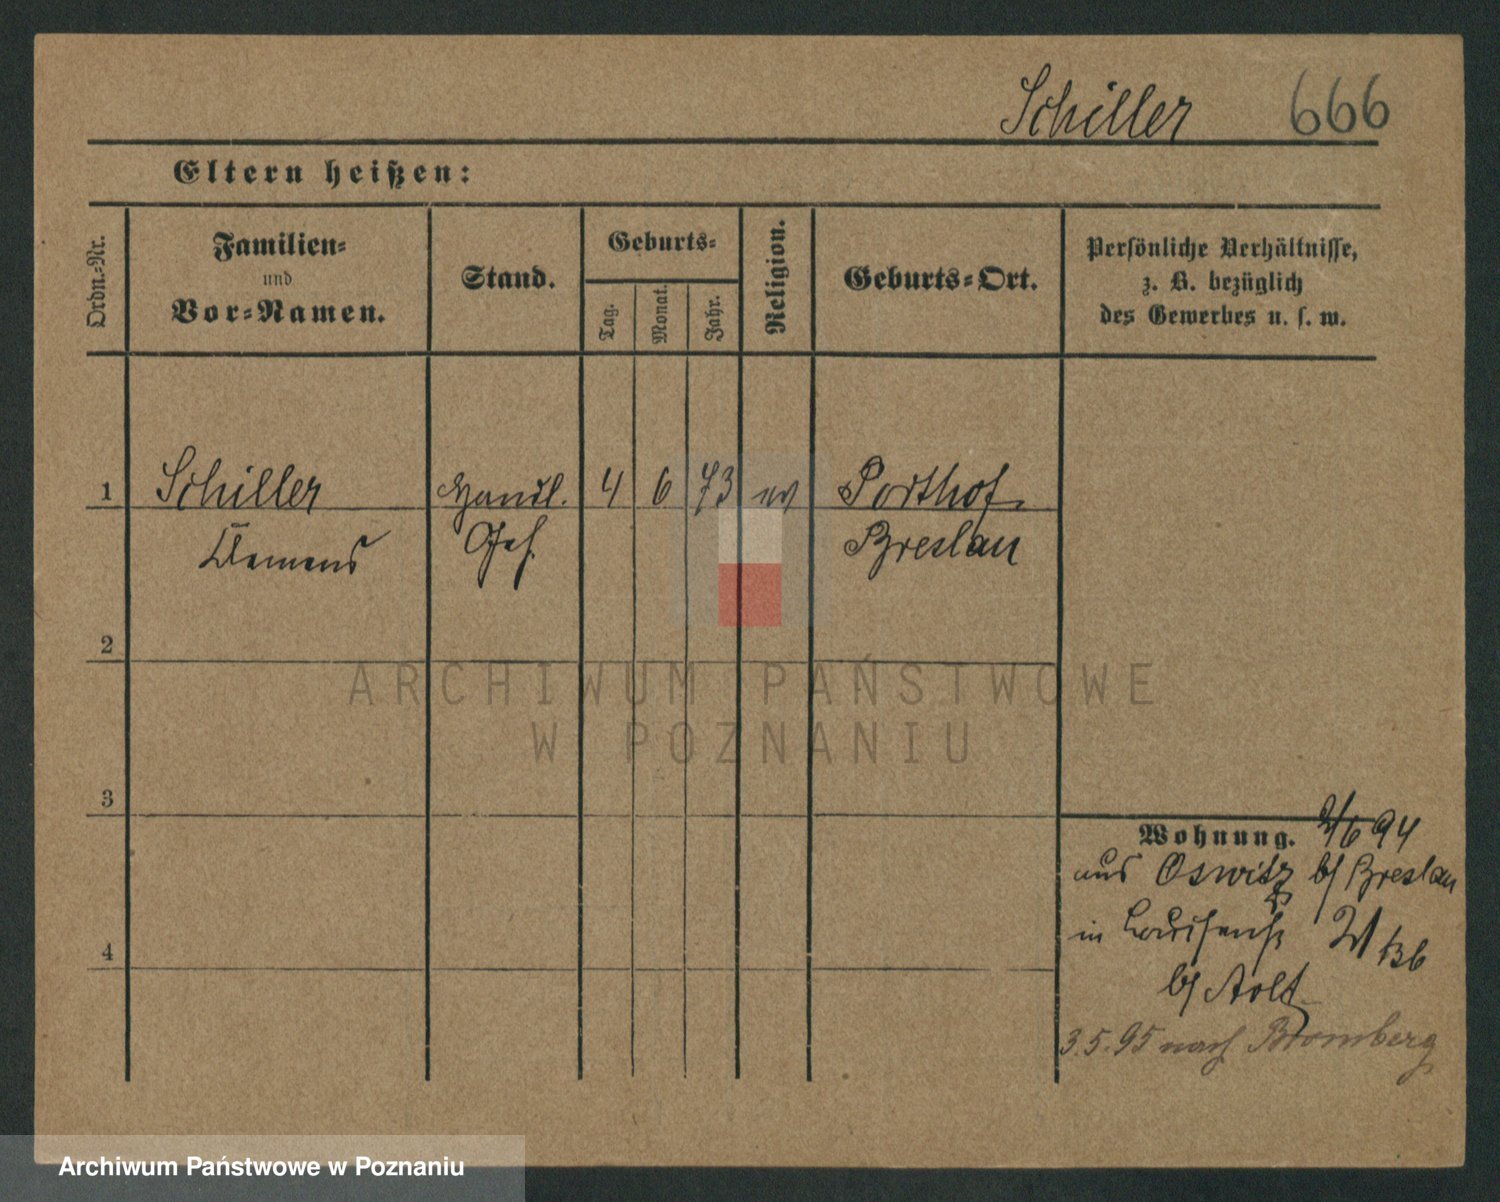 Schiller 666
Eltern heißen:
Ordn.-Nr.
Familien-
und
Vor-Namen.
Stand.
Geburts-
Tag.
Monat.
Jahr.
Religion.
Geburts-Ort.
Persönliche Verhältnisse,
z. B. bezüglich
des Gewerbes u. s. w.
1 Schiller Handl. 4 6 73 ev Porthof
Clemens Geh. Breslau
2
3
4
Wohnung. 2/6 94
aus Oswitz b/ Breslau
in
b/
3.5.95 nach Bromberg
ARCHIWUM PAŃSTWOWE
W POZNANIU
Archiwum Państwowe w Poznaniu